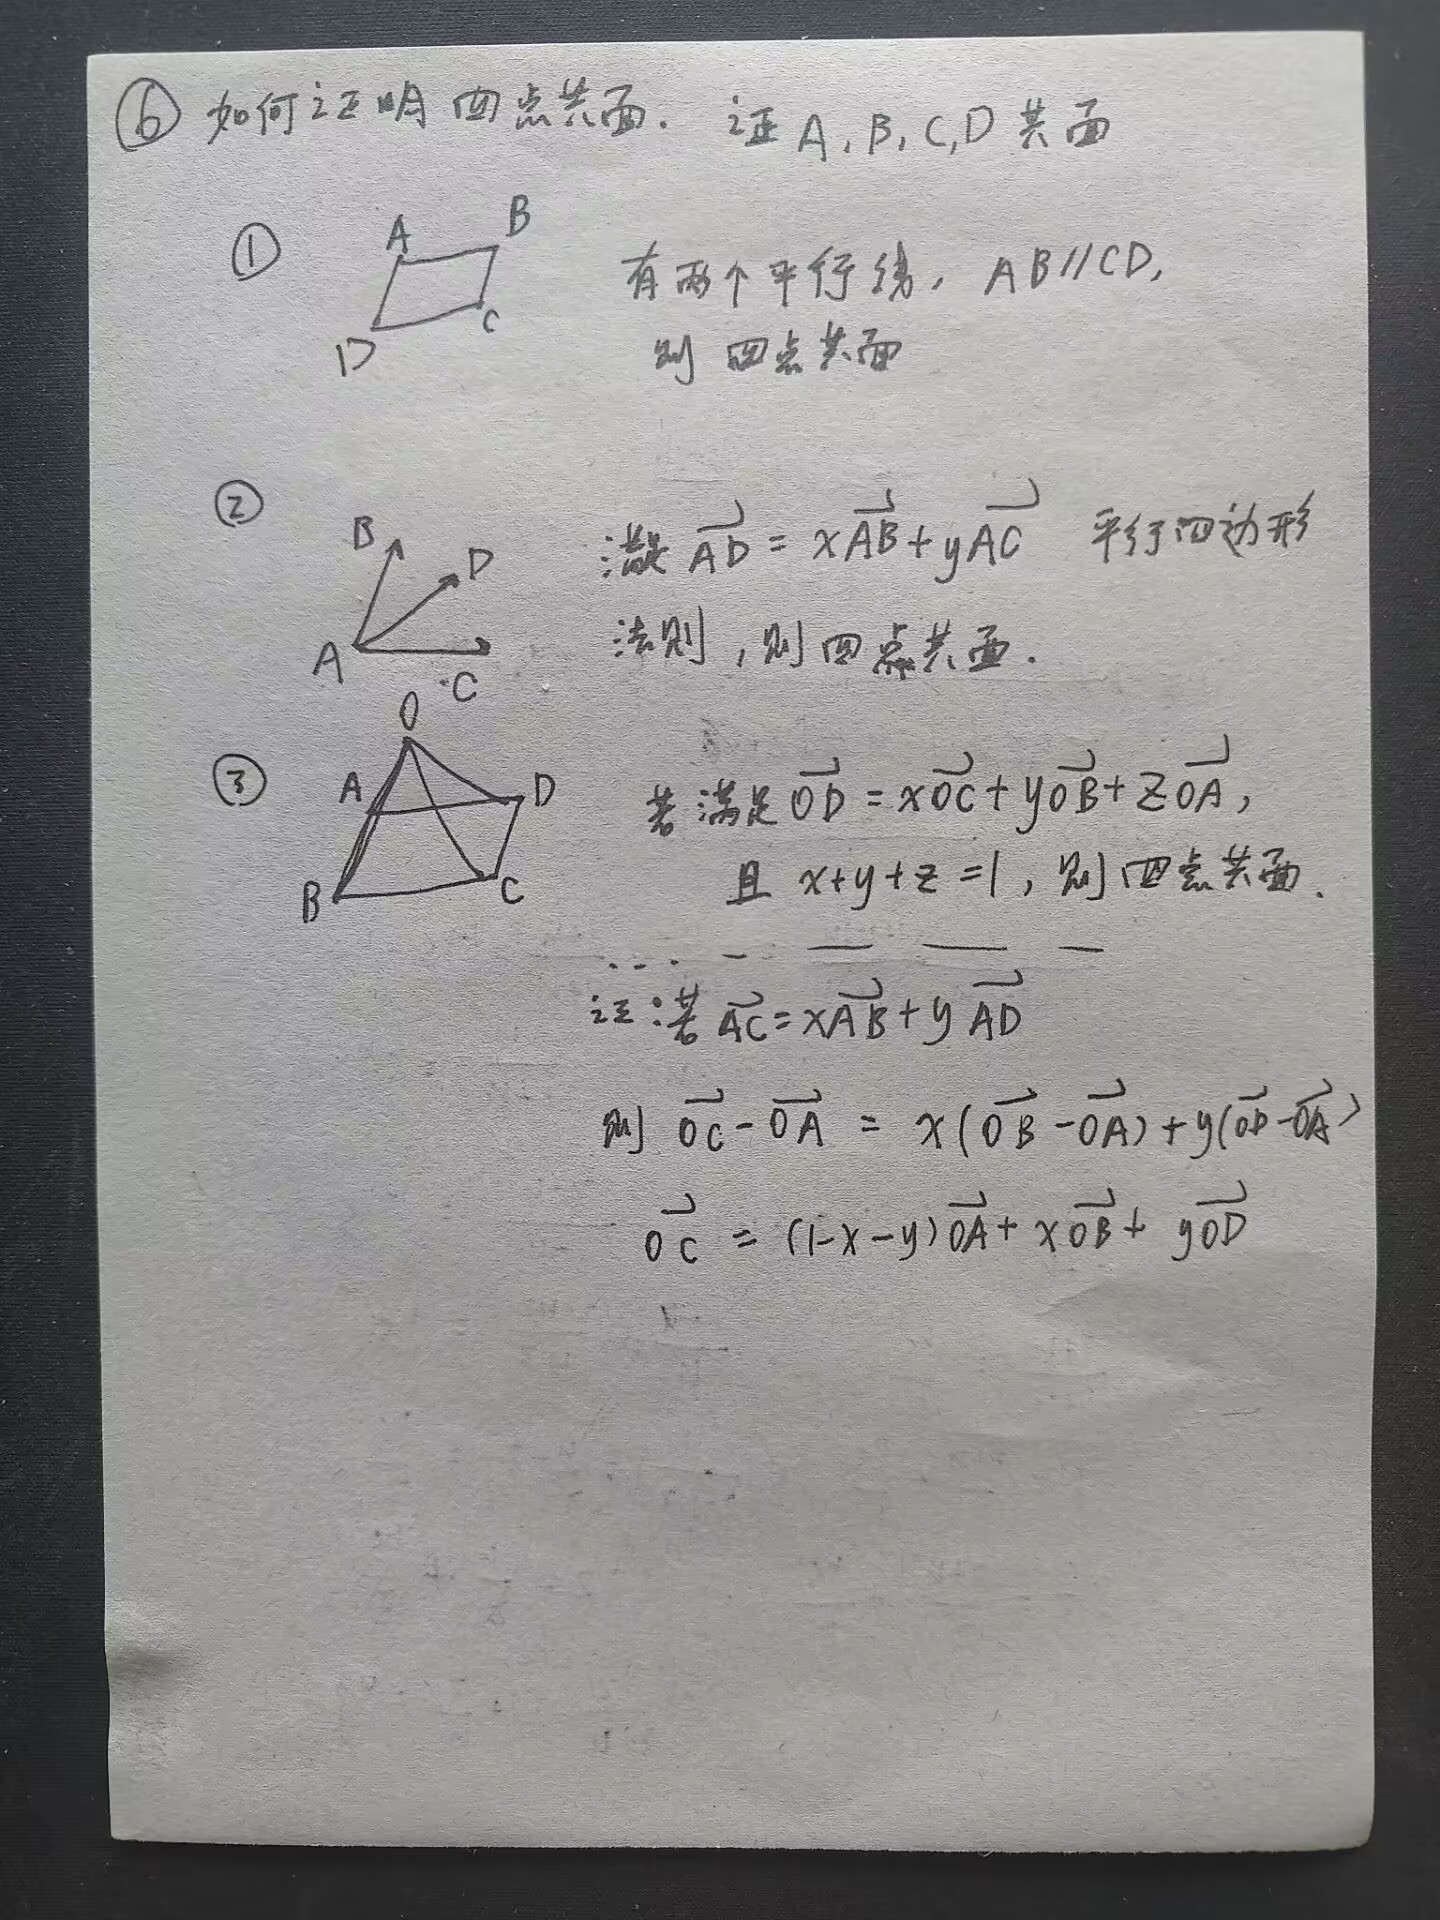 ⑥ 如何证明四点共面. 证A, B, C, D共面
① A B C D 有两个平行线, AB//CD,
则四点共面
② B D A C 满足 \overrightarrow{AD} = x\overrightarrow{AB} + y\overrightarrow{AC} 平行四边形
法则, 则四点共面.
③ O A D B C 若满足 \overrightarrow{OD} = x\overrightarrow{OC} + y\overrightarrow{OB} + z\overrightarrow{OA},
且 x+y+z=1, 则四点共面.
证:若 \overrightarrow{AC} = x\overrightarrow{AB} + y\overrightarrow{AD}
则 \overrightarrow{OC} - \overrightarrow{OA} = x(\overrightarrow{OB} - \overrightarrow{OA}) + y(\overrightarrow{OD} - \overrightarrow{OA})
\overrightarrow{OC} = (1-x-y)\overrightarrow{OA} + x\overrightarrow{OB} + y\overrightarrow{OD}